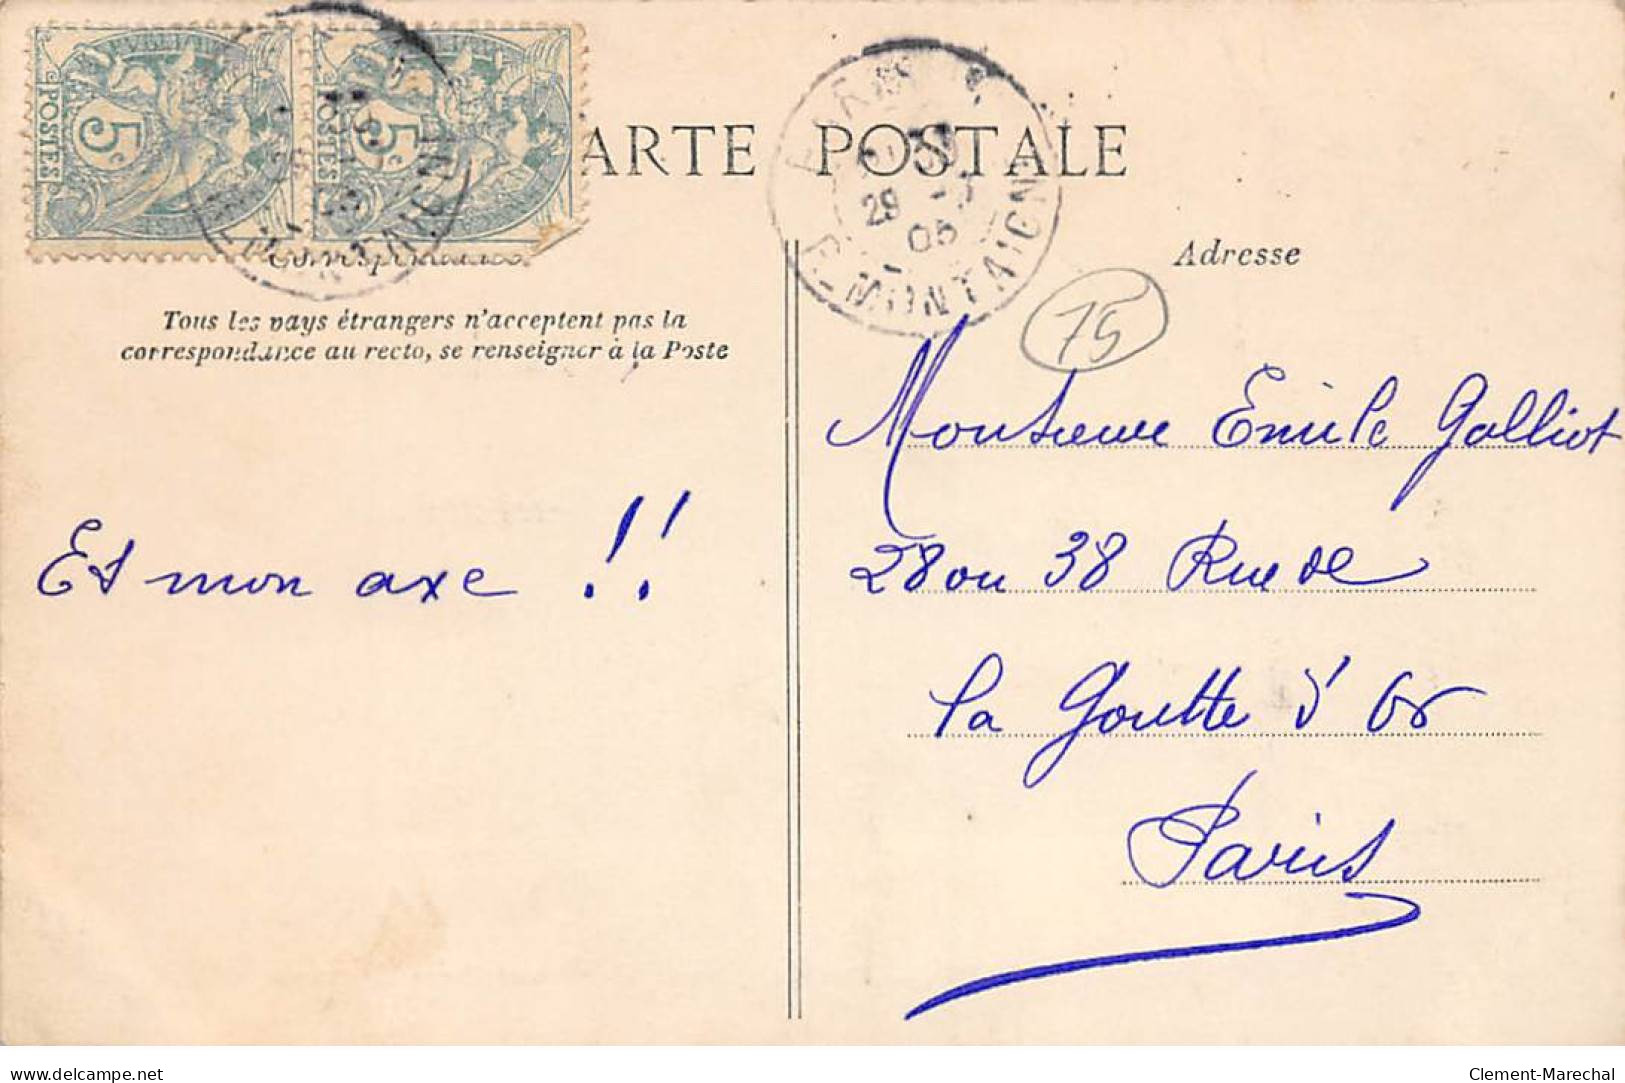 POSTES 5c
POSTES 5c
CARTE POSTALE
29
05
R. MONTAIGNE
Adresse
75
Tous les pays étrangers n'acceptent pas la
correspondance au recto, se renseigner à la Poste
Et mon axe !!
Monsieur Emile Galliot
28 ou 38 Rue de
la Goutte d'Or
Paris
www.delcampe.net
Clement-Marechal